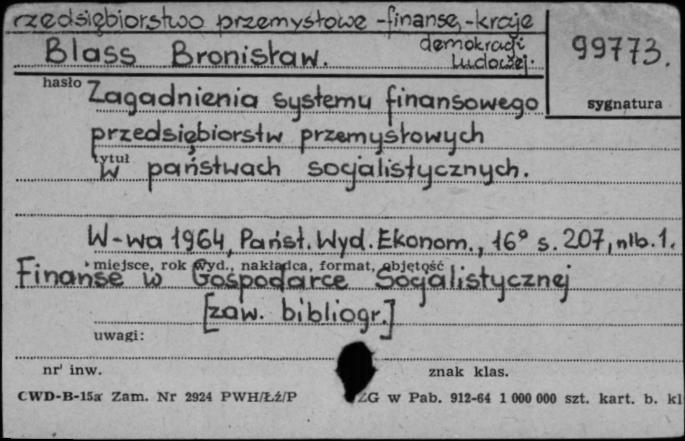 rzedsiębiorstwo przemysłowe-finanse-kraje
demokracji
ludowej.
Blass Bronisław.
99773.
hasło
sygnatura
Zagadnienia systemu finansowego
przedsiębiorstw przemysłowych
tytuł
w państwach socjalistycznych.
W-wa 1964, Państ. Wyd. Ekonom., 16° s. 207, nlb. 1.
miejsce, rok wyd., nakładca, format, objętość
Finanse w Gospodarce Socjalistycznej
[zaw. bibliogr.]
uwagi:
nr inw.
znak klas.
CWD-B-15a Zam. Nr 2924 PWH/Łź/P
ZG w Pab. 912-64 1 000 000 szt. kart. b. kl